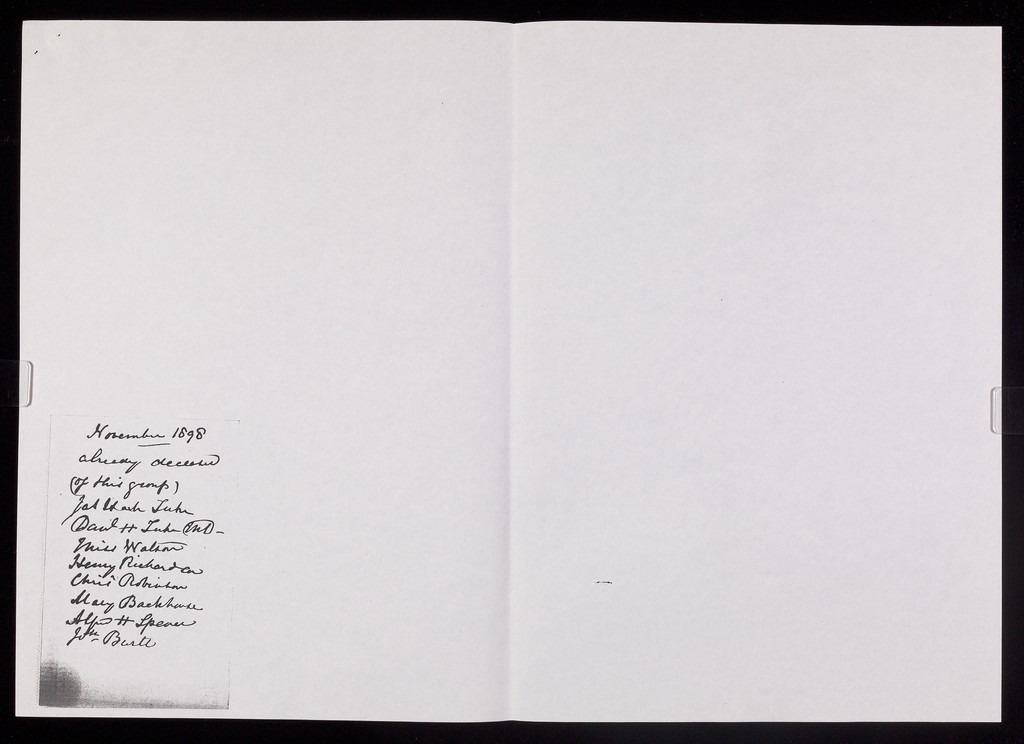 November 1898
already deceased
(of this group)
Jas Hack Tuke
Danl H Tuke MD -
Miss Watson
Henry Richardson
Chris Robinson
Mary Backhouse
Alfd H Spence
Jos